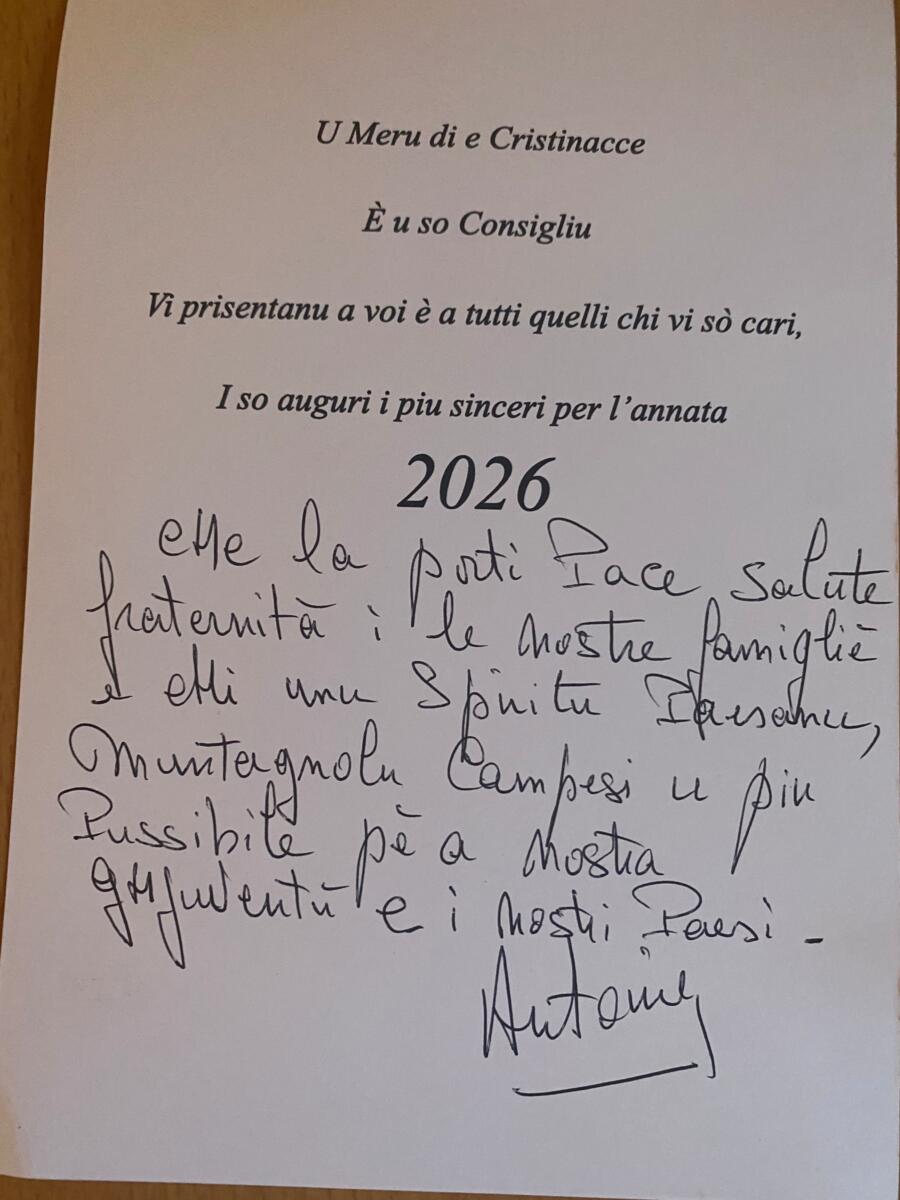 U Meru di e Cristinacce
È u so Consigliu
Vi prisentanu a voi è a tutti quelli chi vi sò cari,
I so auguri i piu sinceri per l'annata
2026
la porti Pace, Salute
fraternità i le nostre famigliè
e unu Spiritu Paesanu,
Muntagnolu Campesi u piu
Pussibile pè a nostra
e i nostri Paesi -
Antoine